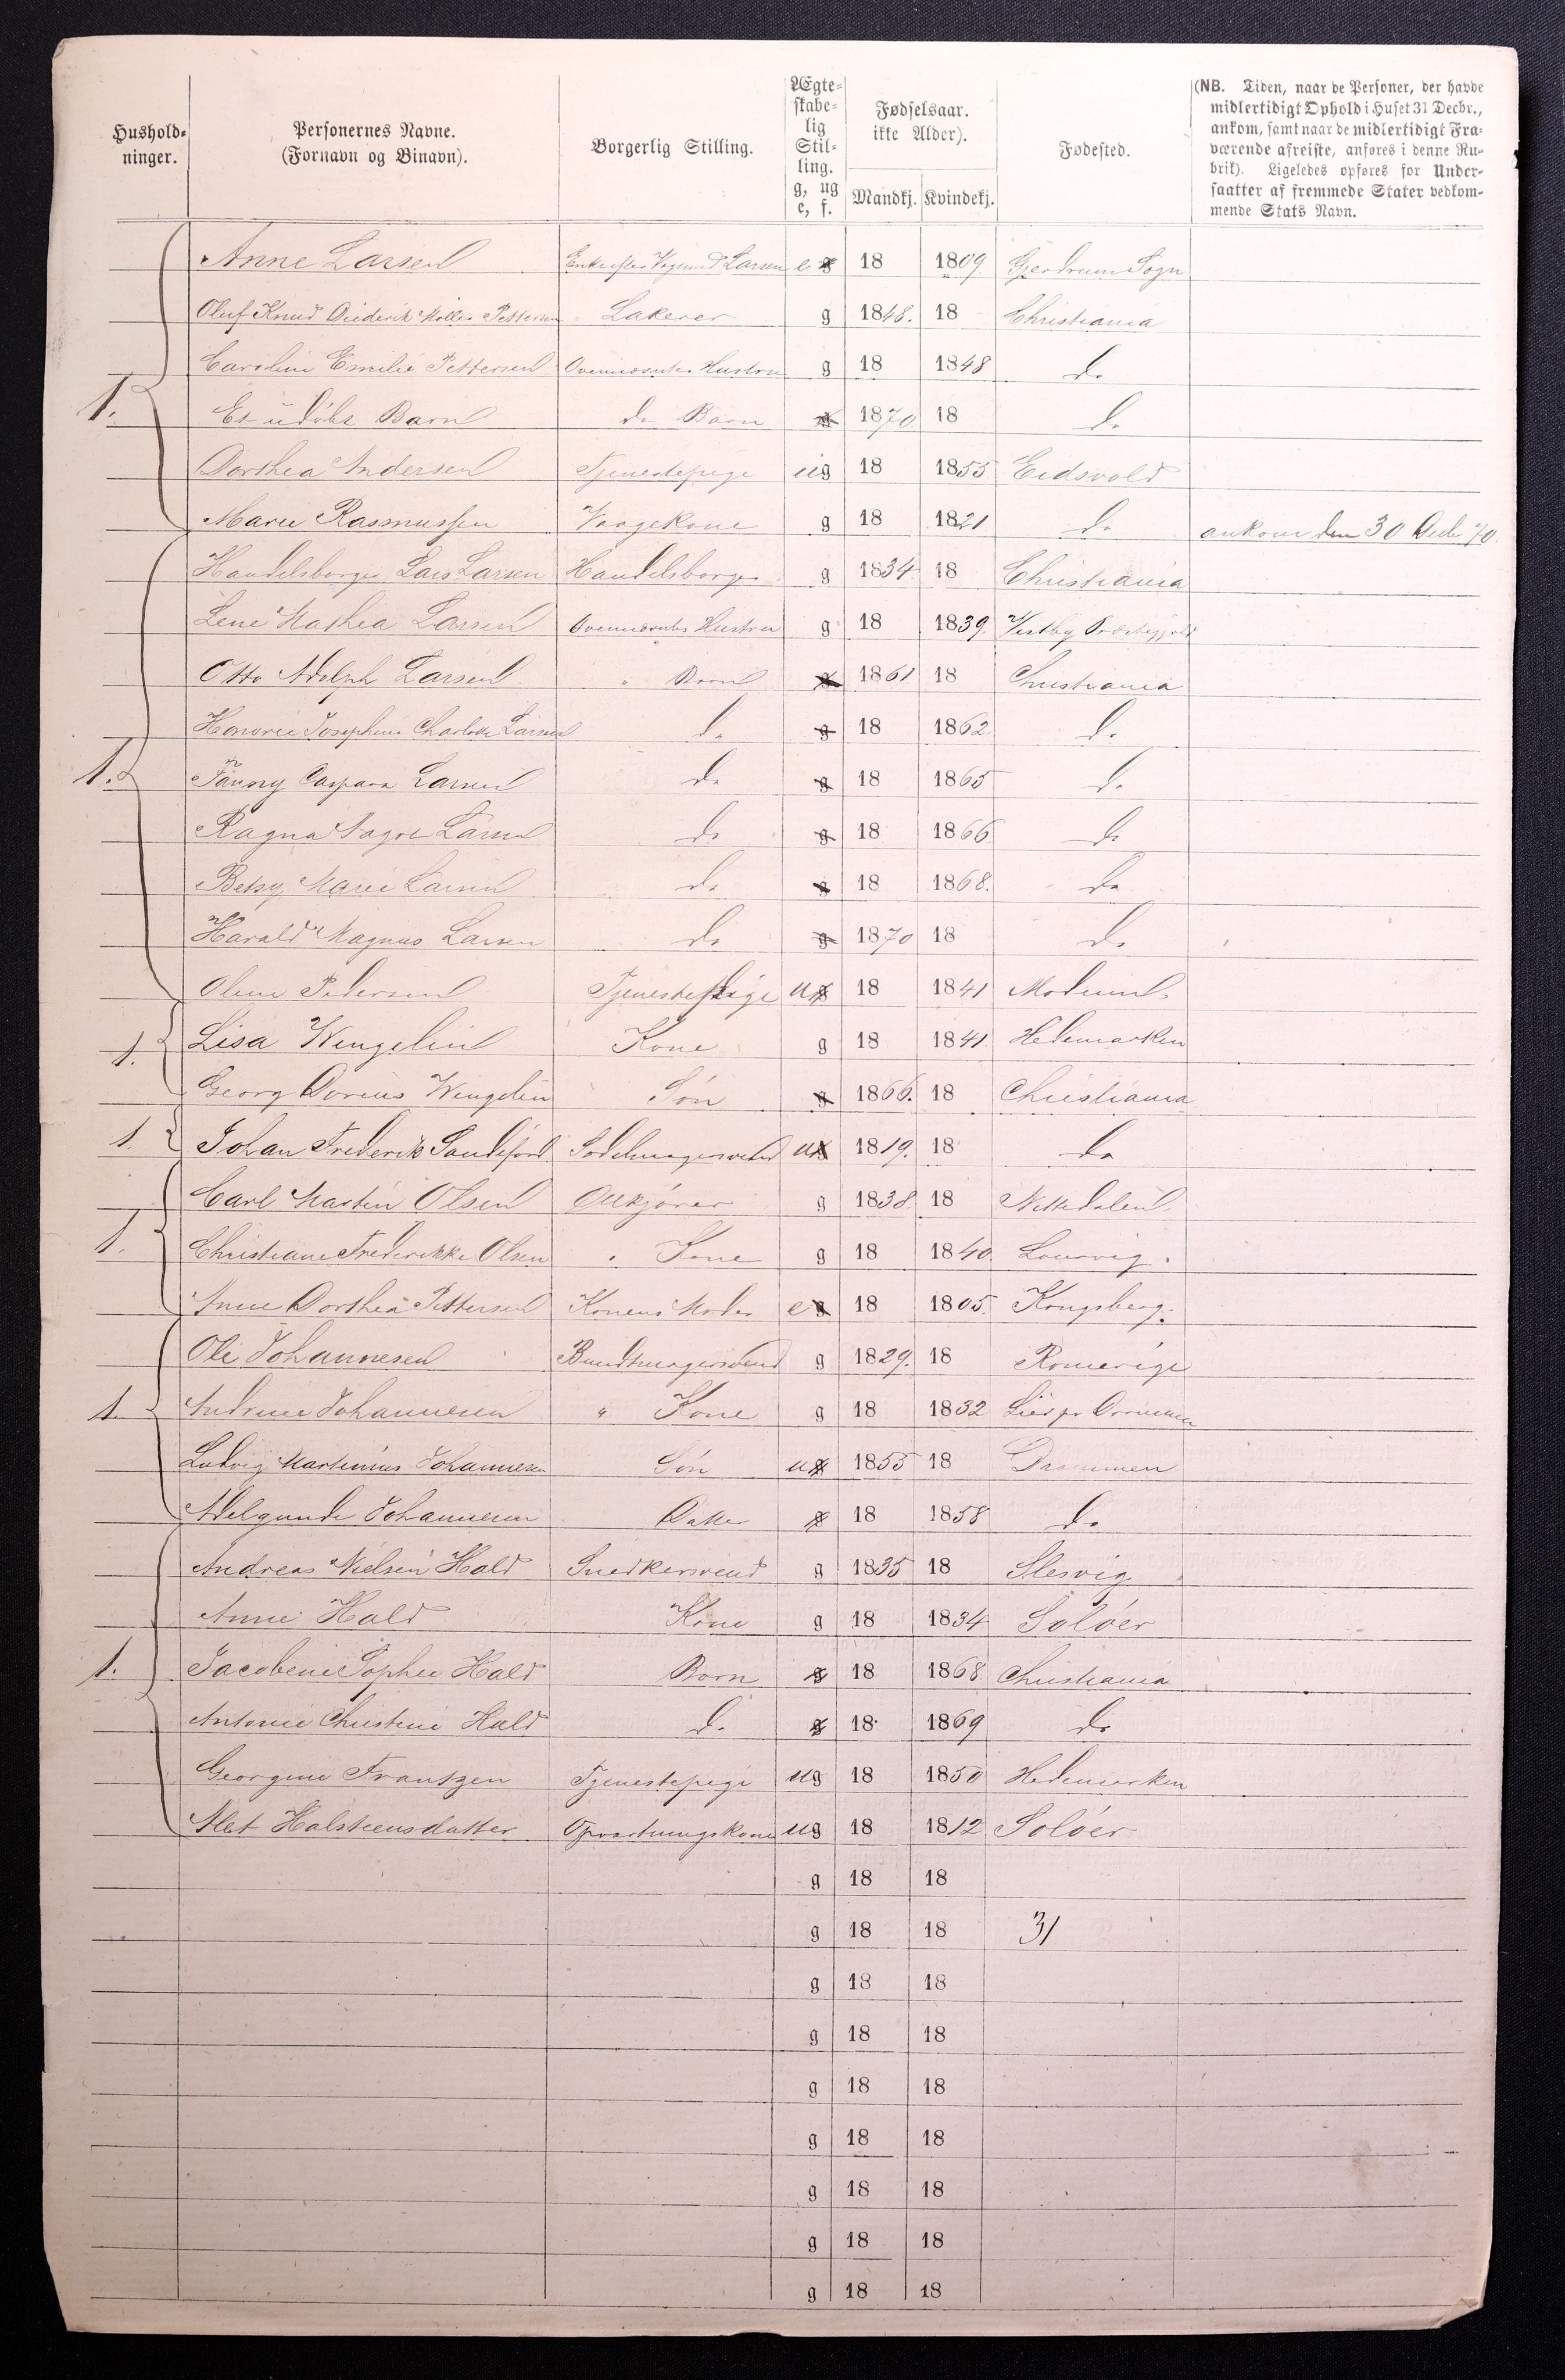 Hushold-
ninger.
Personernes Navne.
(Fornavn og Binavn).
Borgerlig Stilling.
Ægte-
skabe-
lig
Stil-
ling.
g, ug
e, f.
Fødselsaar.
ikke Alder).
Mandkj. Kvindekj.
Fødested.
(NB. Tiden, naar de Personer, der havde
midlertidigt Ophold i Huset 31 Decbr.,
ankom, samt naar de midlertidigt Fra-
værende afreiste, anføres i denne Ru-
brik). Ligeledes opføres for Under-
saatter af fremmede Stater vedkom-
mende Stats Navn.
Anne Larsen Enke efter Larsen e g 18 1809 Gjerdrum Sogn
Oluf Knud Diederik Møller Pettersen Lakerer g 1848. 18 Christiania
Caroline Emilie Pettersen Ovennævntes Hustru g 18 1848 do
1. Et udøbt Barn do Barn g 1870 18 do
Dorthea Andersen Tjenestepige ug 18 1855 Eidsvold
Marie Rasmussen Vaagekone g 18 1821 do ankom den 30 Decbr 70.
Handelsborger Lars Larsen Handelsborger g 1834 18 Christiania
Lene Mathea Larsen Ovennævntes Hustru g 18 1839. Vestby Præstegjeld
Otto Adolph Larsen " Barn g 1861 18 Christiania
Honorie Josephine Charlotte Larsen do g 18 1862 do
1. Fanny Caspara Larsen do g 18 1865 do
Ragna Larsen do g 18 1866 do
Betsy Marie Larsen do g 18 1868. do
Harald Magnus Larsen do g 1870 18 do
Oline Pedersen Tjenestepige ug 18 1841 Modum.
1. Lisa Wengelin Kone g 18 1841 Hedemarken
Georg Wengelin Søn g 1866. 18 Christiania
1. Johan Frederik Sandefjord Sadelmagersvend ug 1819. 18 do
Carl Martin Olsen Ølkjører g 1838 18 Nittedalen
1. Christiane Frederikke Olsen " Kone g 18 1840. Laurvig.
Anne Dorthea Pettersen Konens Moder e g 18 1805. Kongsberg.
Ole Johannesen Bundtmagersvend g 1829. 18 Romerige
1. Andrine Johannesen " Kone g 18 1832 Lier pr Drammen
Ludvig Martinius Johannesen Søn ug 1855 18 Drammen
Adelgunde Johannesen Datter g 18 1858 do
Andreas Nielsen Hald Snedkersvend g 1835 18 Slesvig
Anne Hald Kone g 18 1834 Soløer
1. Jacobine Sophie Hald Barn g 18 1868. Christiania
Antonie Christine Hald do g 18 1869 do
Georgine Frantzen Tjenestepige ug 18 1850 Hedemarken
Alet Halsteensdatter Opvartningskone ug 18 1812 Soløer
g 18 18
g 18 18 31
g 18 18
g 18 18
g 18 18
g 18 18
g 18 18
g 18 18
g 18 18